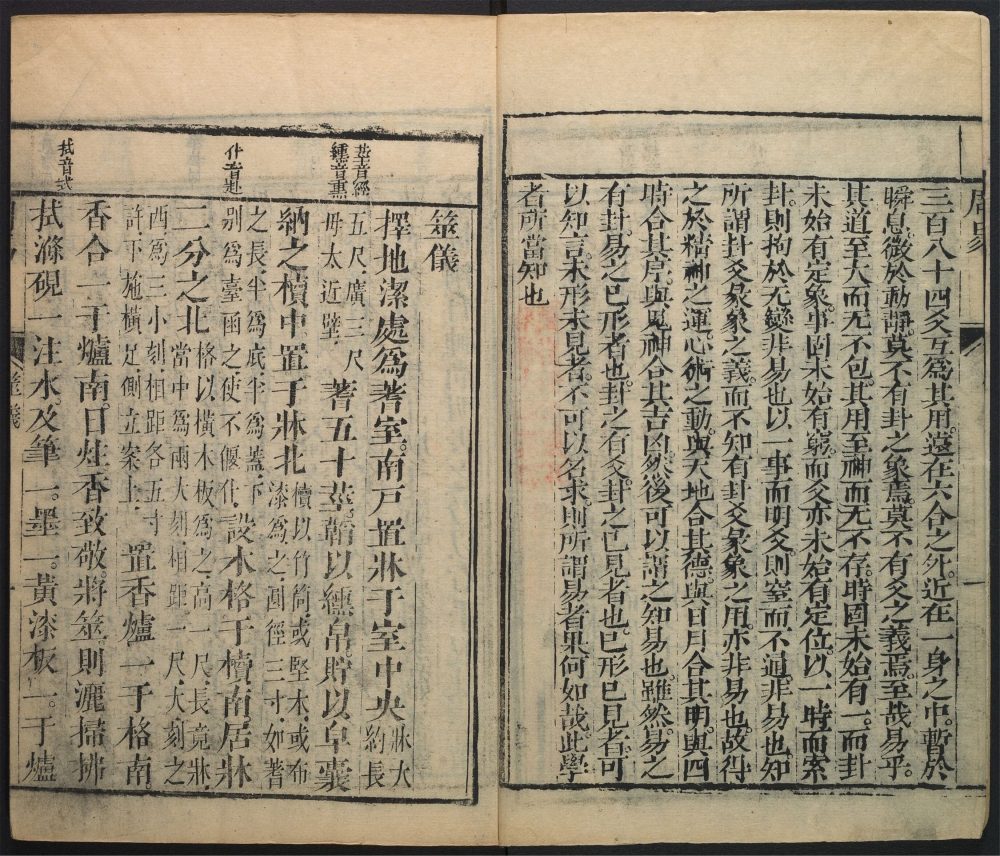 周易
三百八十四爻互爲其用遠在六合之外近在一身之中暫於
瞬息微於動靜莫不有卦之象焉莫不有爻之義焉至哉易乎
其道至大而无不包其用至神而无不存時固未始有一而卦
未始有定象事固未始有窮而爻亦未始有定位以一時而索
卦則拘於无變非易也以一事而明爻則窒而不通非易也知
所謂卦爻彖象之義而不知有卦爻彖象之用亦非易也故得
之於精神之運心術之動與天地合其德與日月合其明與四
時合其序與鬼神合其吉凶然後可以謂之知易也雖然易之
有卦易之已形者也卦之有爻卦之已見者也已形已見者可
以知言未形未見者不可以名求則所謂易者果何如哉此學
者所當知也
筮儀
莖音經
纁音熏
擇地潔處爲蓍室南戶置牀于室中央牀大約長
五尺廣三尺毋太近壁蓍五十莖韜以纁帛貯以皁囊
仆音赴
納之櫝中置于牀北櫝以竹筒或堅木或布漆爲之圓徑三寸如蓍
之長半爲底半爲蓋下別爲臺函之使不偃仆設木格于櫝南居牀
二分之北格以橫木板爲之高一尺長竟牀當中爲兩大刻相距一尺大刻之
西爲三小刻相距各五寸許下施橫足側立案上置香爐一于格南
香合一于爐南日炷香致敬將筮則灑掃拂
拭音式
拭滌硯一注水及筆一墨一黃漆板一于爐
筮儀